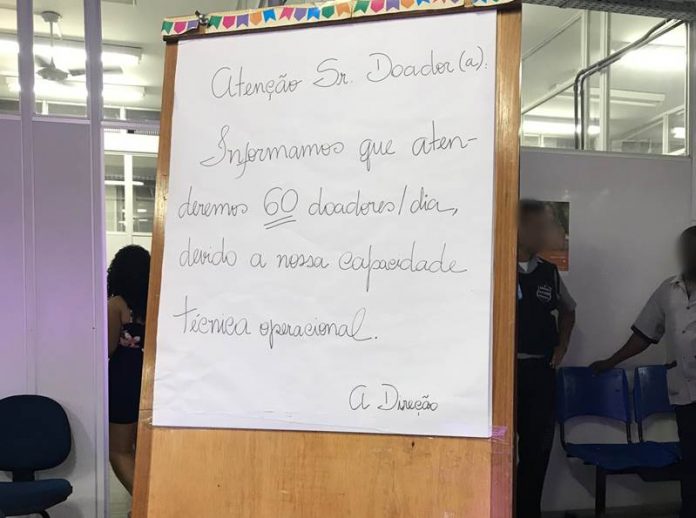 Atenção Sr. Doador(a):
Informamos que aten-
deremos 60 doadores/dia,
devido a nossa capacidade
técnica operacional.
A Direção